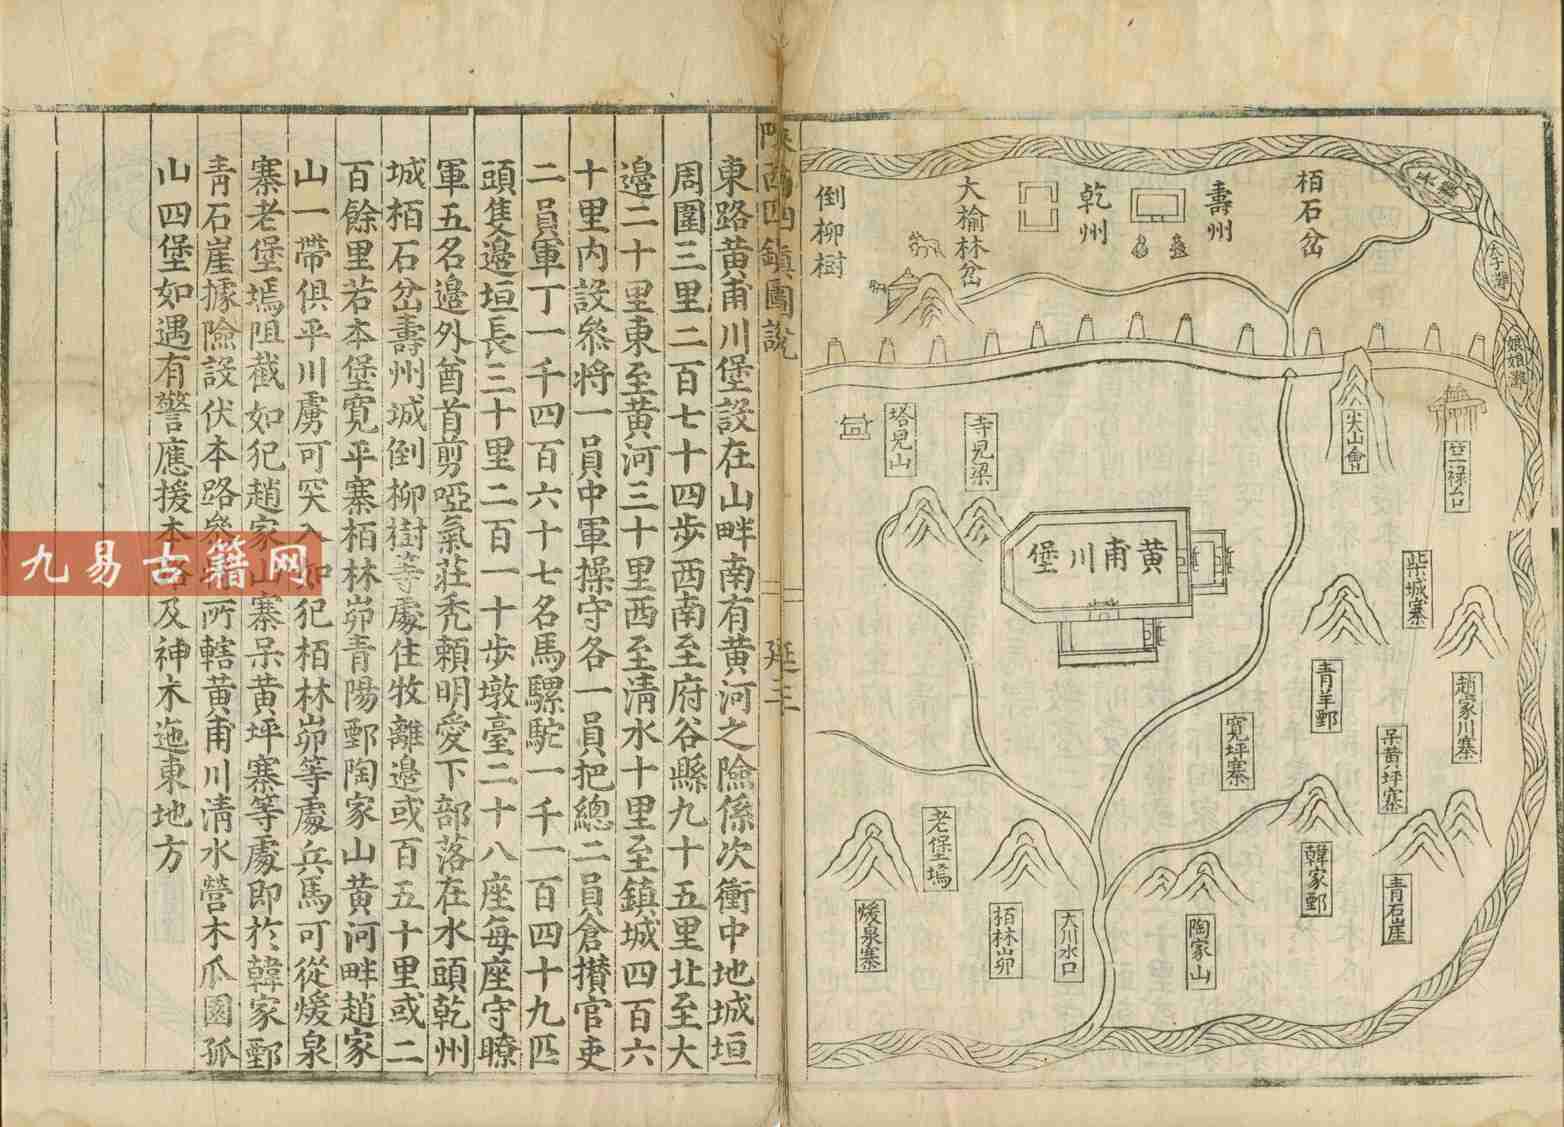 栢石岔
壽州
乾州
大榆林岔
倒柳樹
娘娘灘
尖山會
寺見梁
塔見山
黃甫川堡
柴城寨
趙家川寨
青羊鄄
寬坪寨
韓家鄄
青石崖
陶家山
大川水口
栢林峁
老堡塢
煖泉寨
陝西四鎮圖說
延三
東路黃甫川堡設在山畔南有黃河之險係次衝中地城垣
周圍三里二百七十四步西南至府谷縣九十五里北至大
邊二十里東至黃河三十里西至清水十里至鎮城四百六
十里內設叅將一員中軍操守各一員把總二員倉攢官吏
二員軍丁一千四百六十七名馬騾駝一千一百四十九匹
頭隻邊垣長三十里二百一十步墩臺二十八座每座守瞭
軍五名邊外酋首剪啞氣莊禿賴明愛下部落在水頭乾州
城栢石岔壽州城倒柳樹等處住牧離邊或百五十里或二
百餘里若本堡寬平寨栢林峁青陽鄄陶家山黃河畔趙家
山一帶俱平川虜可突入如犯栢林峁等處兵馬可從煖泉
寨老堡塢阻截如犯趙家山寨呆黃坪寨等處即於韓家鄄
青石崖據險設伏本路叅 所轄黃甫川清水營木瓜園孤
山四堡如遇有警應援本 及神木迤東地方
九易古籍网